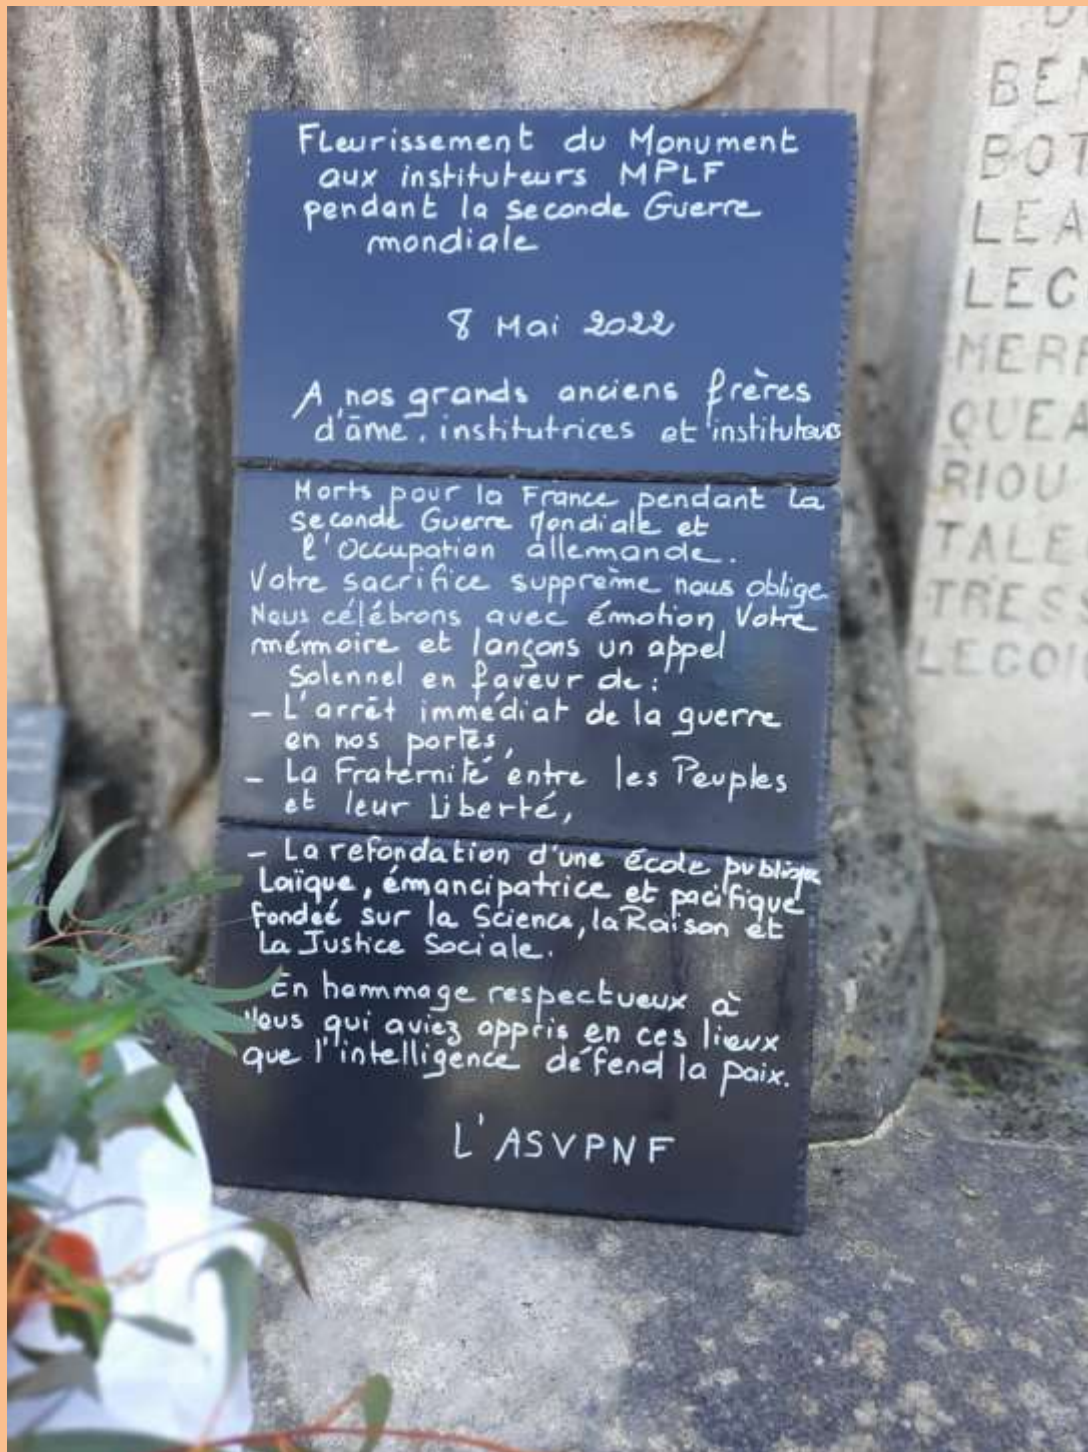 Fleurissement du Monument
aux instituteurs MPLF
pendant la seconde Guerre
mondiale
8 Mai 2022
A nos grands anciens frères
d'âme, institutrices et instituteurs
Morts pour la France pendant la
seconde Guerre Mondiale et
l'Occupation allemande.
Votre sacrifice suprème nous oblige
Nous célébrons avec émotion Votre
mémoire et lançons un appel
Solennel en faveur de :
– L'arrêt immédiat de la guerre
en nos portes,
– La Fraternité entre les Peuples
et leur Liberté,
– La refondation d'une école publique
Laïque, émancipatrice et pacifique
fondeé sur la Science, la Raison et
La Justice Sociale.
En hommage respectueux à
Vous qui aviez appris en ces lieux
que l'intelligence défend la paix.
L'ASVPNF
BEN
BOT
LEA
LEC
MERR
QUEA
RIOU
TALE
TRESS
LEGOI